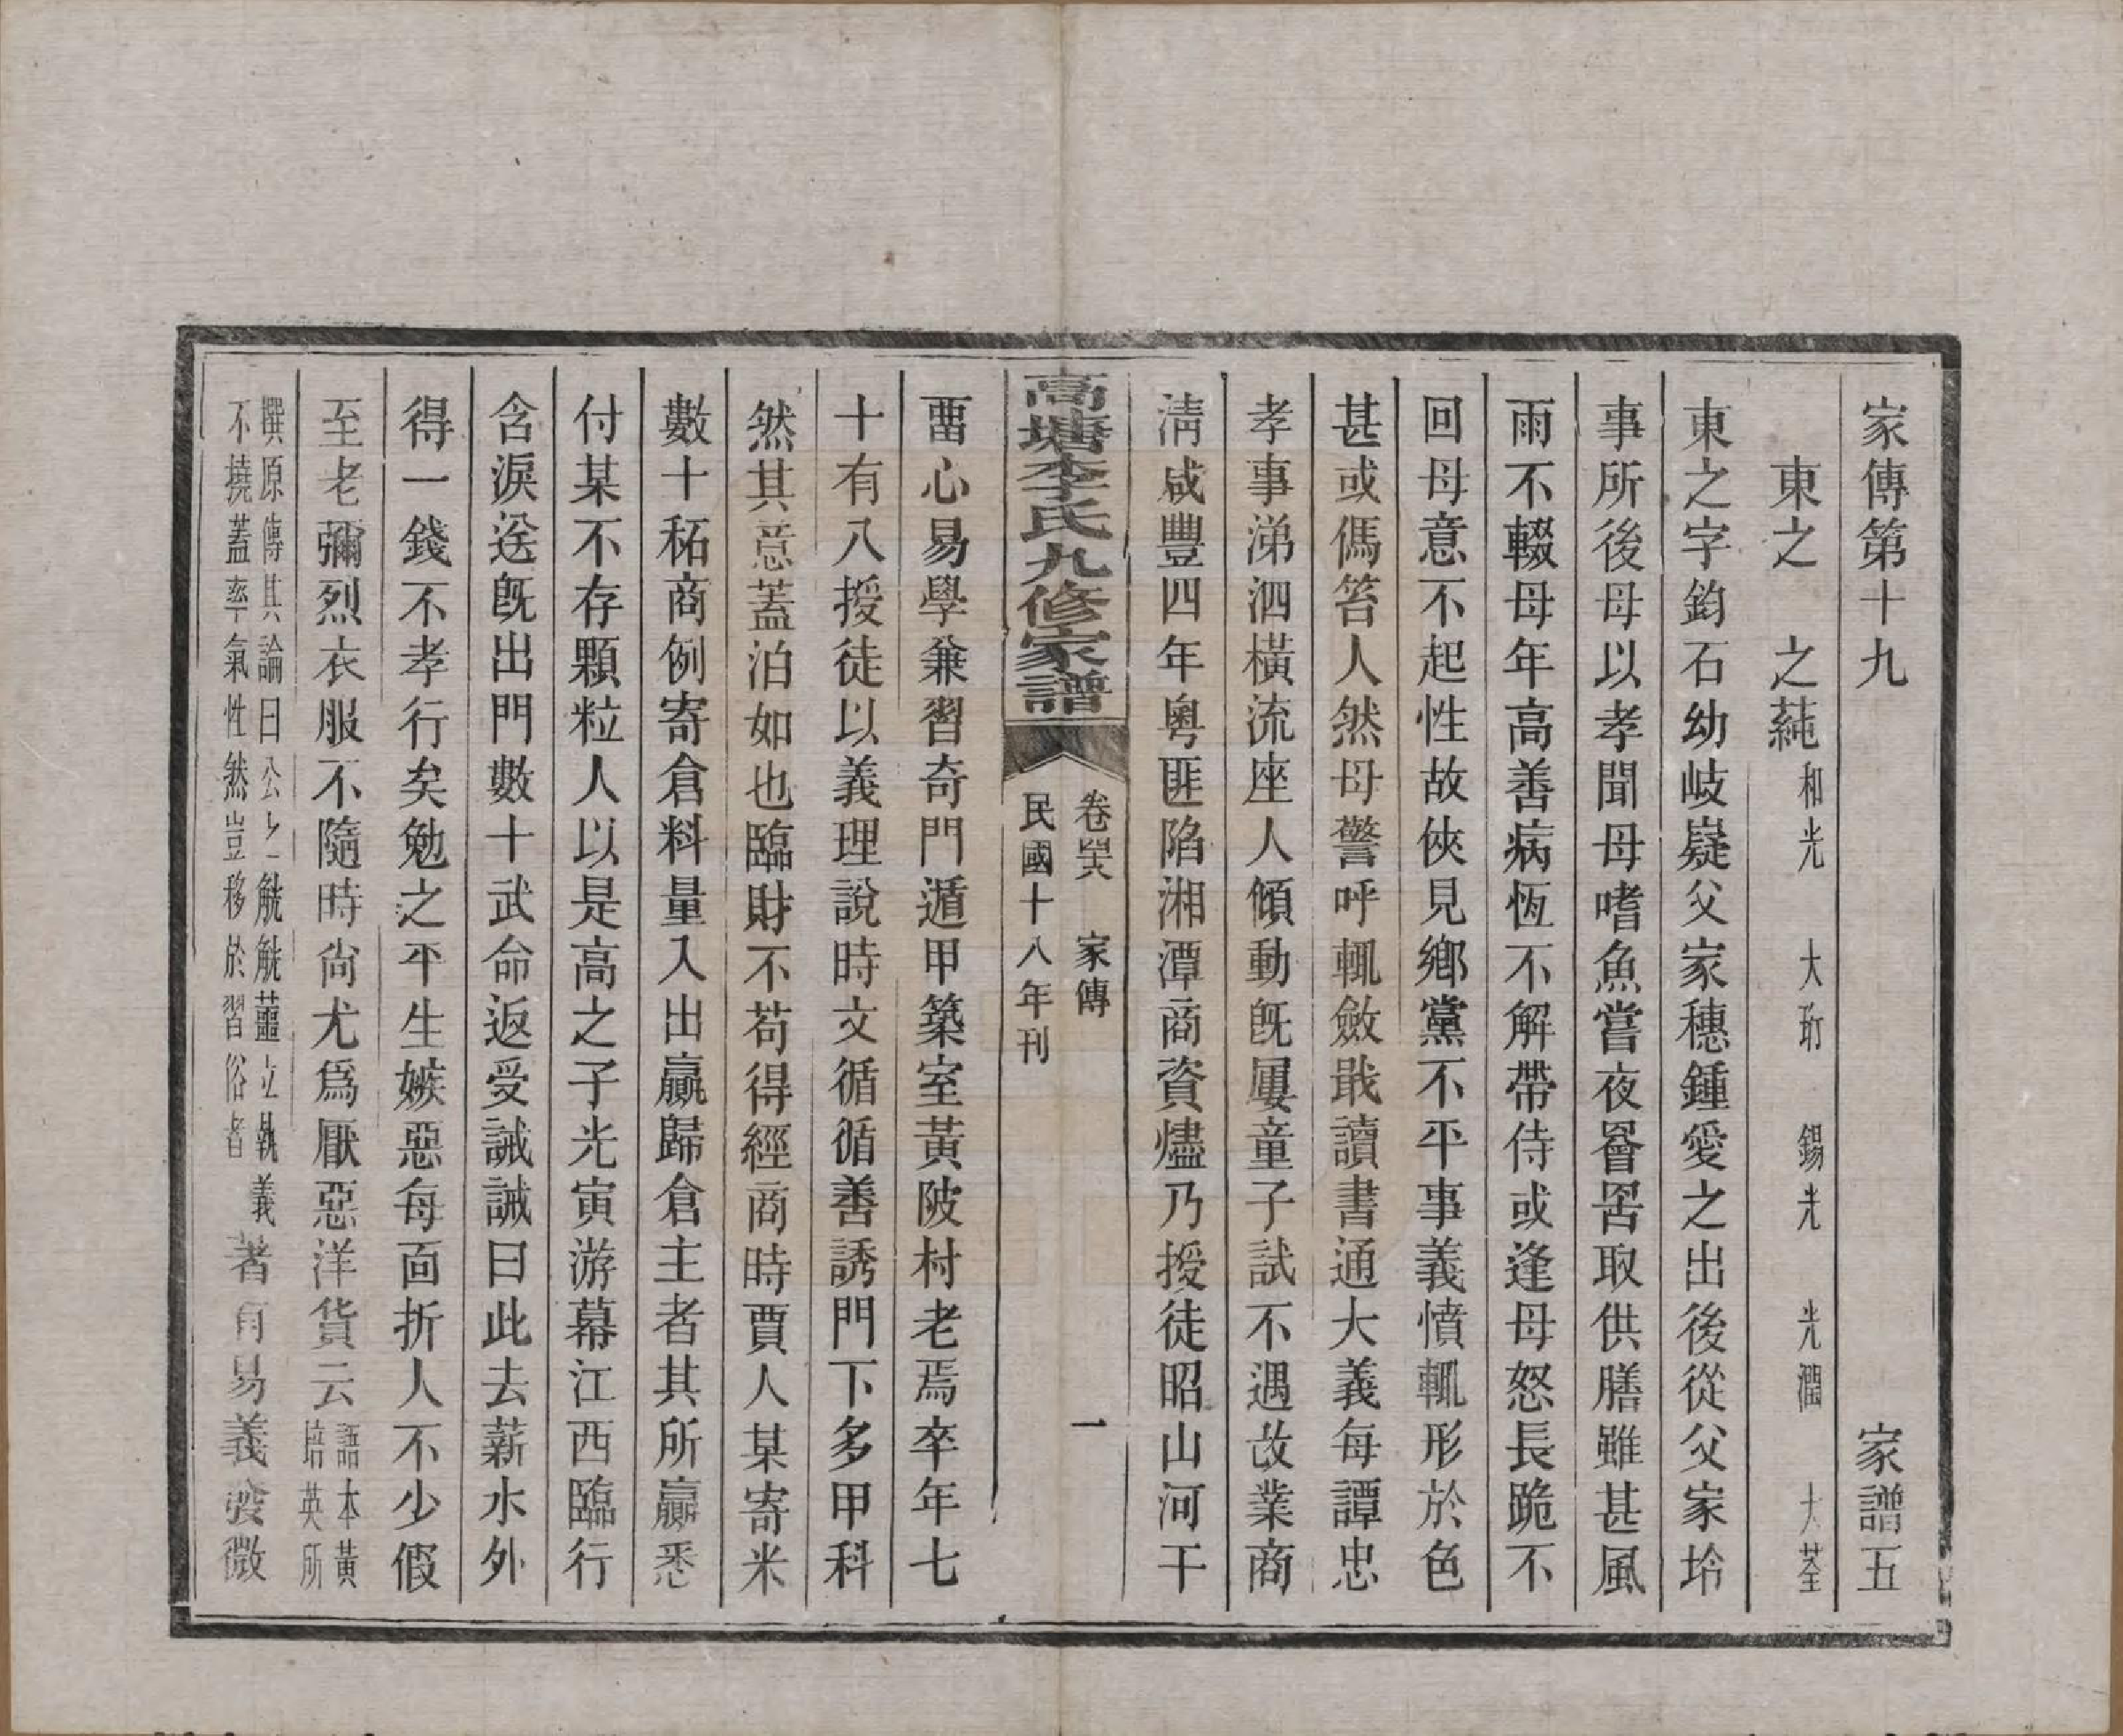 家傳第十九　家譜五
東之　之蒓　和光　大㪵　錫光　光潤　大荃
東之字鈞石幼岐嶷父家穗鍾愛之出後從父家坽
事所後母以孝聞母嗜魚嘗夜罾罟取供膳雖甚風
雨不輟母年高善病恆不解帶侍或逢母怒長跪不
回母意不起性故俠見鄉黨不平事義憤輒形於色
甚或傌笞人然母警呼輒斂戢讀書通大義每譚忠
孝事涕泗橫流座人傾動旣屢童子試不遇故業商
淸咸豐四年粵匪陷湘潭商資燼乃授徒昭山河干
高塘李氏九修家譜
卷䦉六　家傳　一
民國十八年刊
畱心易學兼習奇門遁甲築室黃陂村老焉卒年七
十有八授徒以義理說時文循循善誘門下多甲科
然其意蓋泊如也臨財不苟得經商時賈人某寄米
數十秙商例寄倉料量入出贏歸倉主者其所贏悉
付某不存顆粒人以是高之子光寅游幕江西臨行
含淚送旣出門數十武命返受誡誡曰此去薪水外
得一錢不孝行矣勉之平生嫉惡每面折人不少假
至老彌烈衣服不隨時尚尤爲厭惡洋貨云語本黃培英所
撰原傳其論曰公之觥觥薑立執義
不撓蓋率氣性然豈移於習俗者
著有易義發微